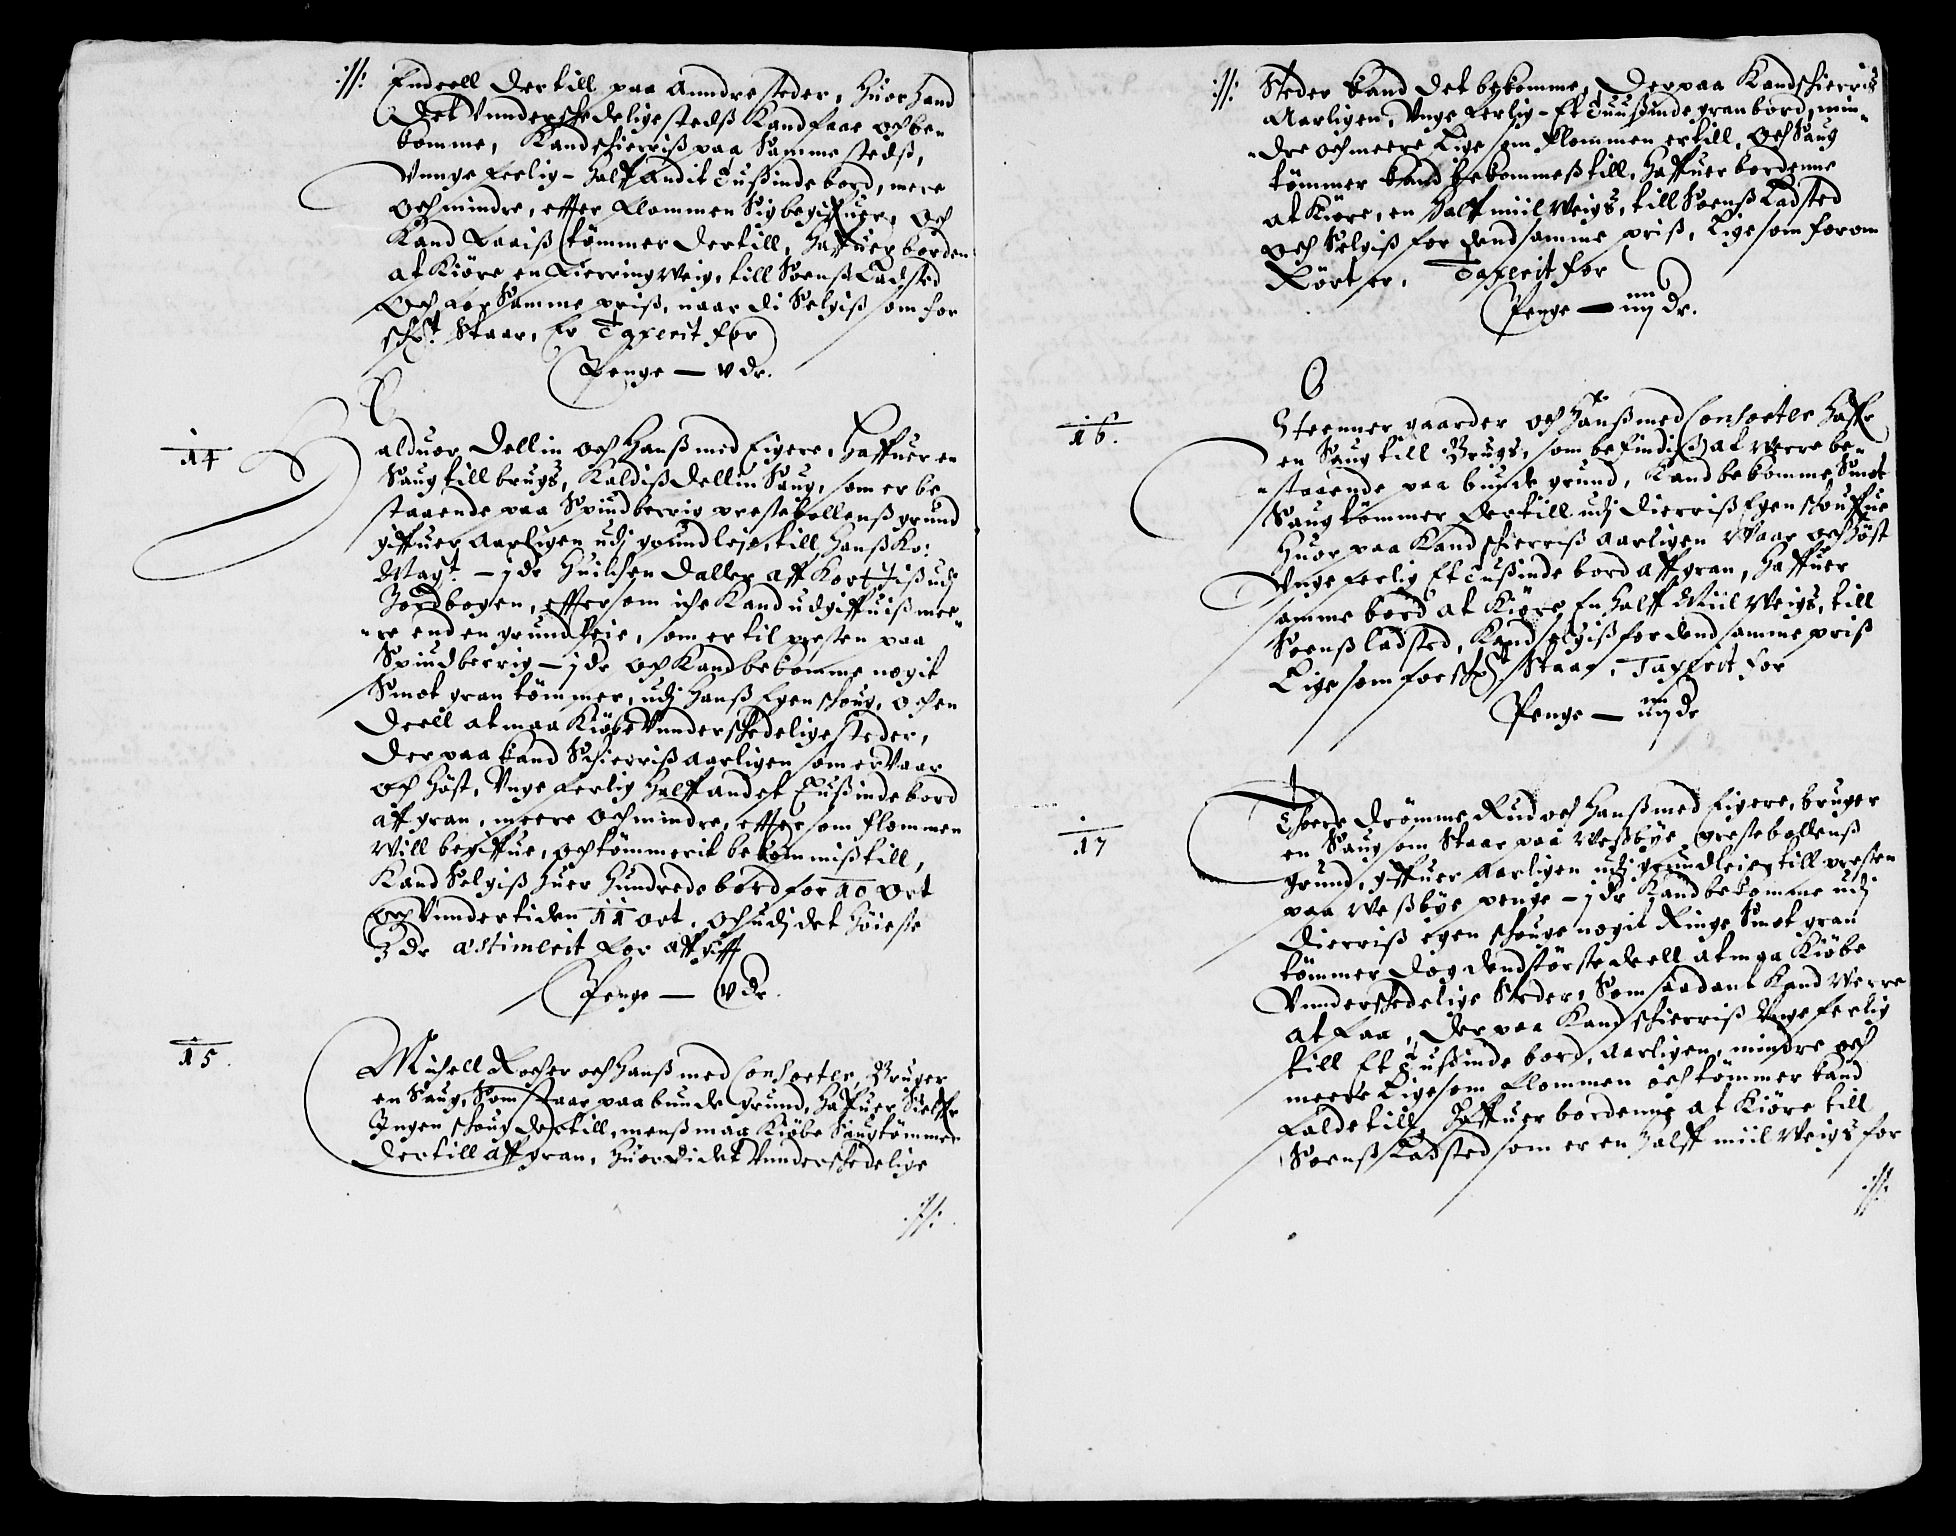 :/: Endeell dertill paa anndre steder, huor hand
det Vunderschedelige stedß kand faae och be=
komme, Kand schierriß paa samme stedß,
Vnngefeerlig – halff andit tußinde bord, mere
och mindre, effter flommen sig begiffuer, och
kand faaiß tömmer dertill, haffuer borden
at kiöre en fierring Veig, till Soenß Ladsted
och aer samme priß, naar di selgiß som for
schr: staar, er Taxerit for
Penge — v dr.
14
Halduor Dellin och hanß med Eigere, haffuer en
Saug till brugs, Kaldiß Dellin Saug, som er be
staaende paa Spindberrig prestebollenß grund
giffuer aarligen udj grundleje, till hanß Ko:
May:t – j dr huilchen daller aff kort[tiß] udj
Jordbogen, effter som iche kand udgiffuiß mee=
=re end en grundleie, som er til presten paa
Spindberrig – j dr och kand bekomme nogit
Smot gran tömmer, udj hanß Egen schoug, och en
deell at maa kiöbe Vunderschedelige steder,
der paa kand Schierriß aarligen som er Vaar
och höst, Vngefeerlig halff andet tußinde bord
aff gran, meere och mindre, effter som flommen
Vill begiffue, och tömmerit bekommiß till,
Kand Selgiß huer hundrede bord for 10 ort
och Vundertiden 11 ort, och udj det höieste
3 dr æstimerit for aff gifft
Penge — v dr.
15.
Michell Rocher och hanß med Consorter, Bruger
en Saug, Som staar paa bunde grund, haffuer Sielff
Ingen schoug dertill, menß maa kiöbe Saugtömmer
dertill aff gran, huor di det Vunderschedelige
:/:
:/: Steder kand det bekomme, der paa kand schierriß
Aarligen, Vngefeerlig – Et Tuußinde gran bord, min=
=dre och meere Lige som flommen er till, och Saug
tömmer kand bekommeß till, haffuer bordenne
at kiöre, en halff miil Veigs, till Soenß Ladsted
och Selgiß for dend samme priß, Lige som forom
Rört er, Taxerit for
Penge — iiij dr.
16.
Steenner gaarder och hanß med Consorter haffr
en Saug till Brugs, som befindiß at Verre be=
=staaende paa bunde grund, Kand bekomme Smot
Saugtömmer dertill udj dierriß Egen schouffue
huor paa kand schierriß aarligen Vaar och höst
Vngefeerlig Et tußinde bord aff gran, haffuer
samme bord at kiöre En halff Miil Veigs, till
Soenß ladsted, Kand selgiß for dend samme priß
Lige som for schr: staar, Taxerit for
Penge — iiij dr
17
Thord Drömme Rud och hanß med Eigere, bruger
en Saug som Staar paa Veßbye prestebollenß
grund, giffuer aarligen udj grundleie till presten
paa Veßbye penge – j dr Kand bekomme udj
dierriß egen schouge nogit Ringe Smot gran
tömmer dog dend störste deell at maa kiöbe
Vunderschedelige Steder, Som saadant kand Verre
at faa, der paa kand schierriß Vngefeerlig
till Et tußinde bord, aarligen, mindre och
meere Lige som flommen och tömmer kand
falde till, haffuer bordenne at kiöre till
Soenß Ladsted som er en halff miil Veigs for
:/: